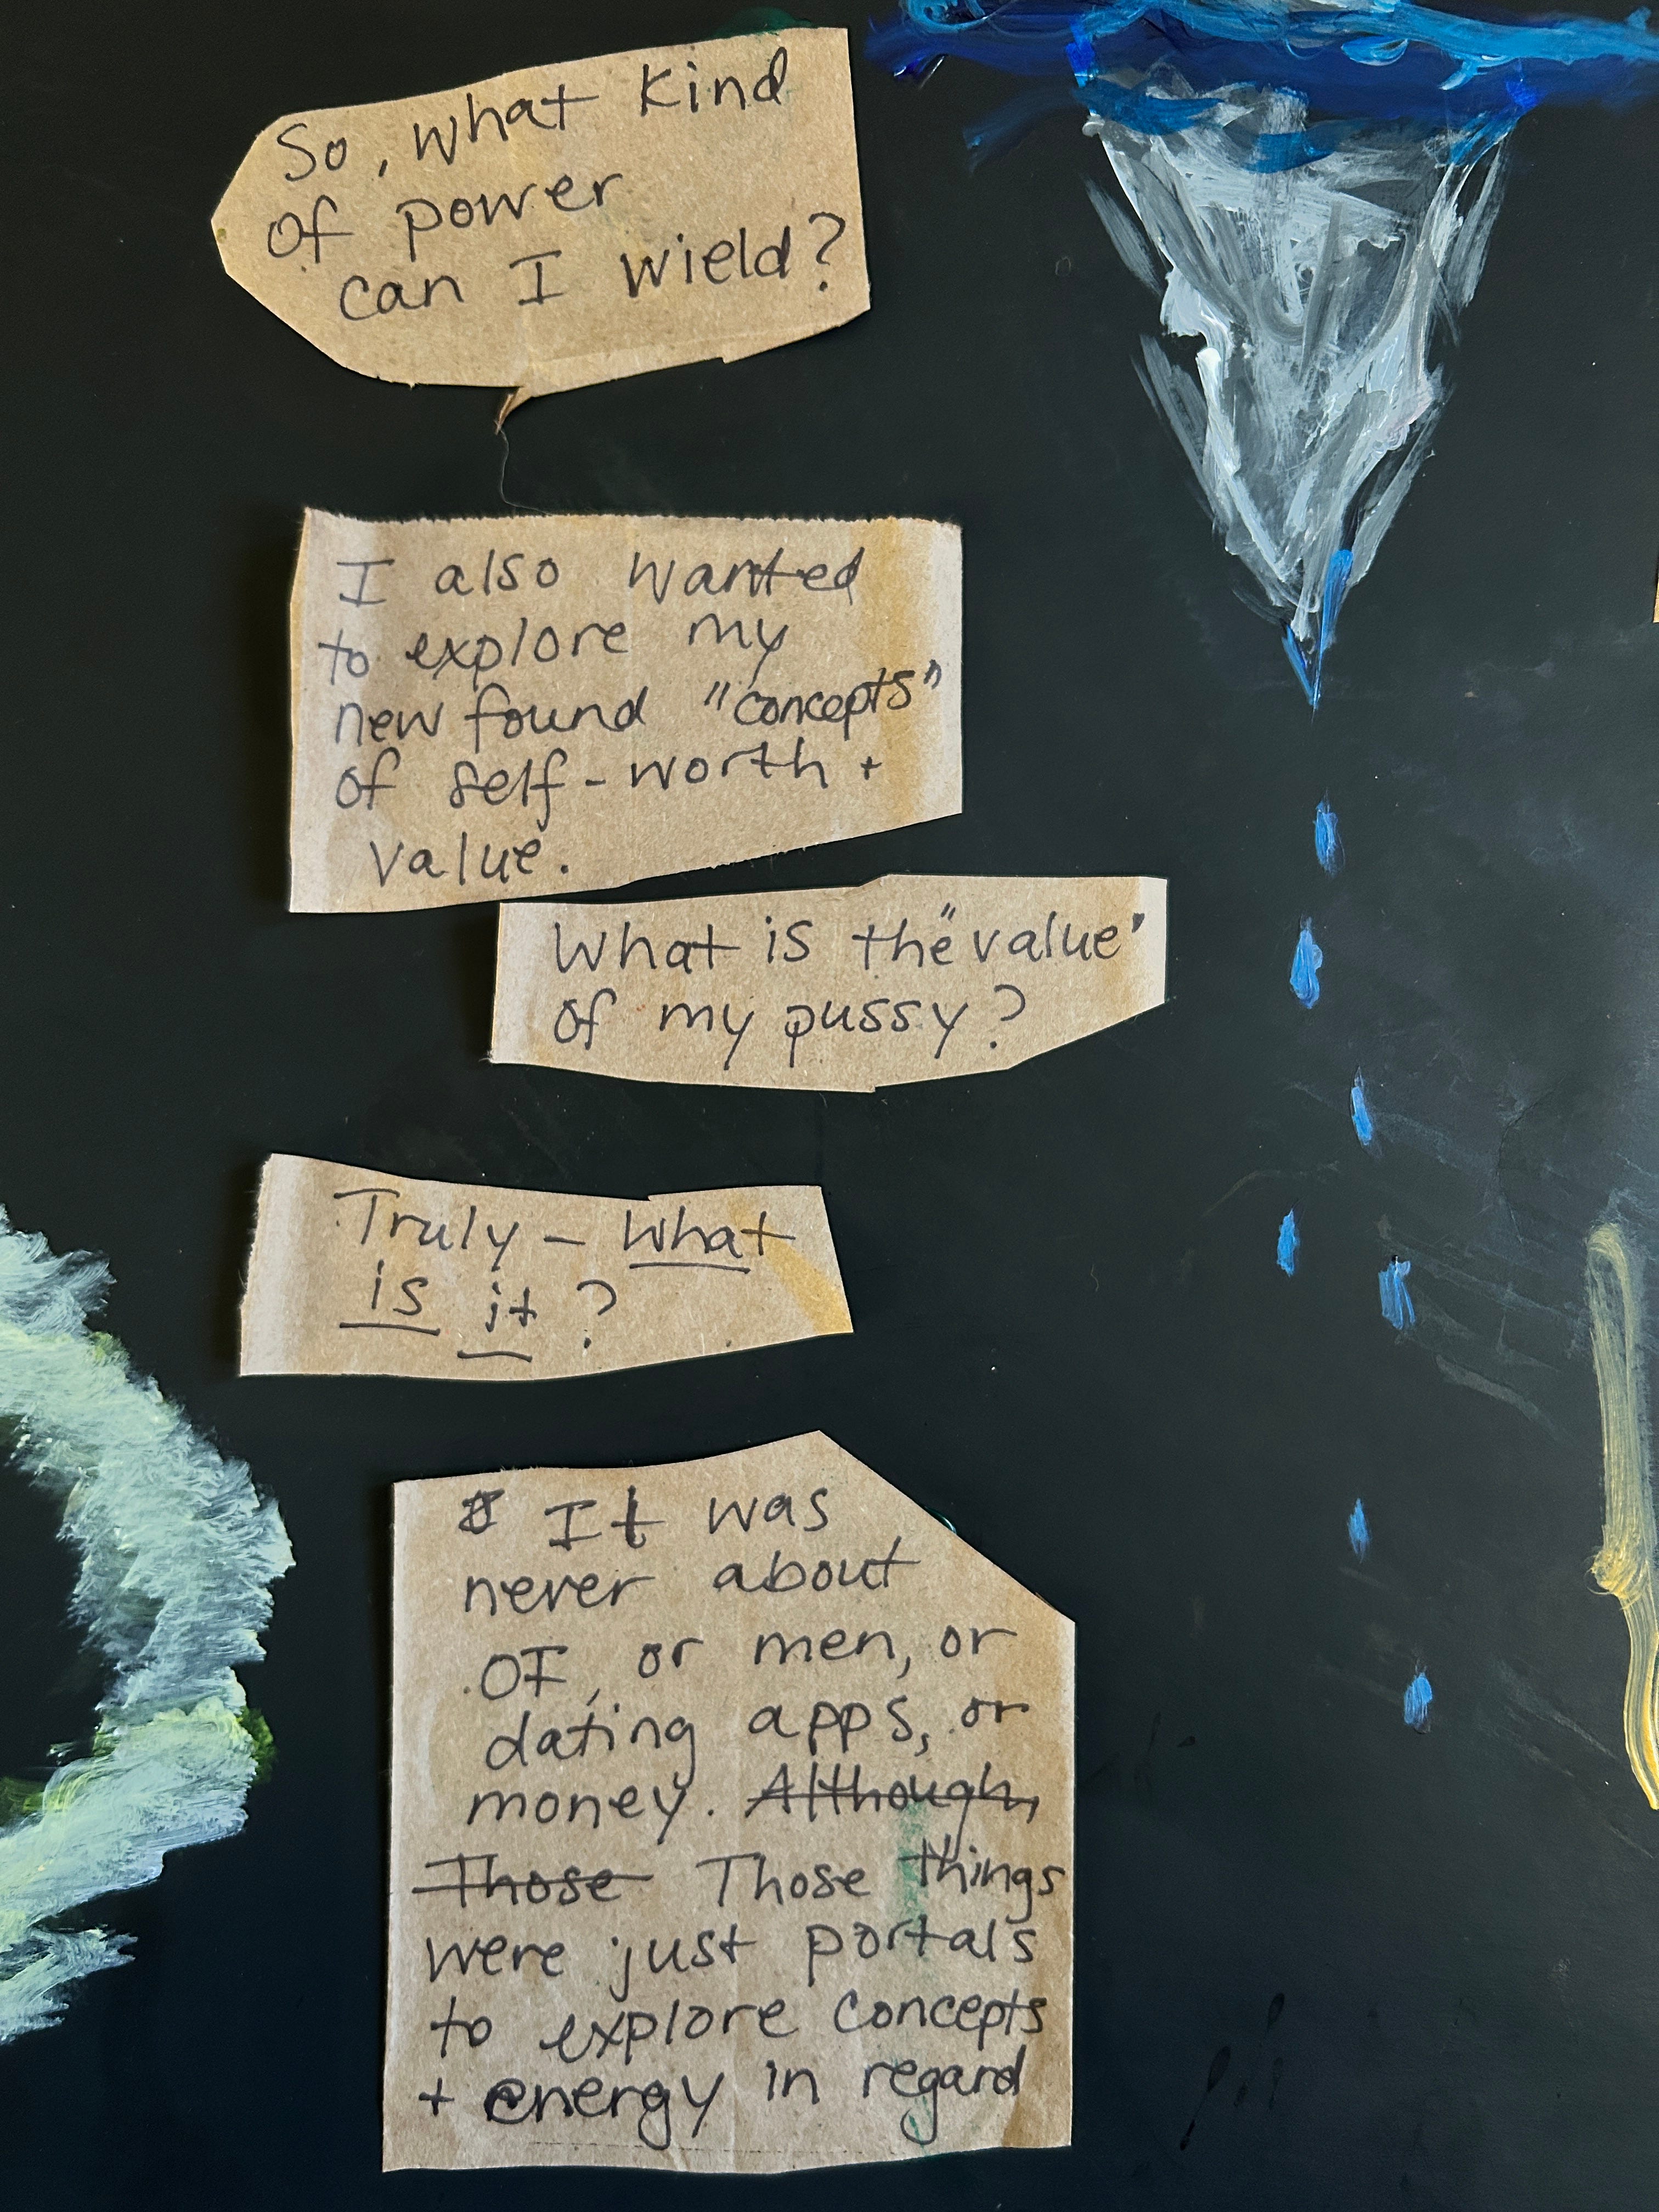 So, what kind
of power
can I wield?
I also wanted
to explore my
new found "concepts"
of self-worth +
value.
What is the "value"
of my pussy?
Truly - what
is it?
It was
never about
OF, or men, or
dating apps, or
money. Although,
Those Those things
were just portals
to explore concepts
+ energy in regard